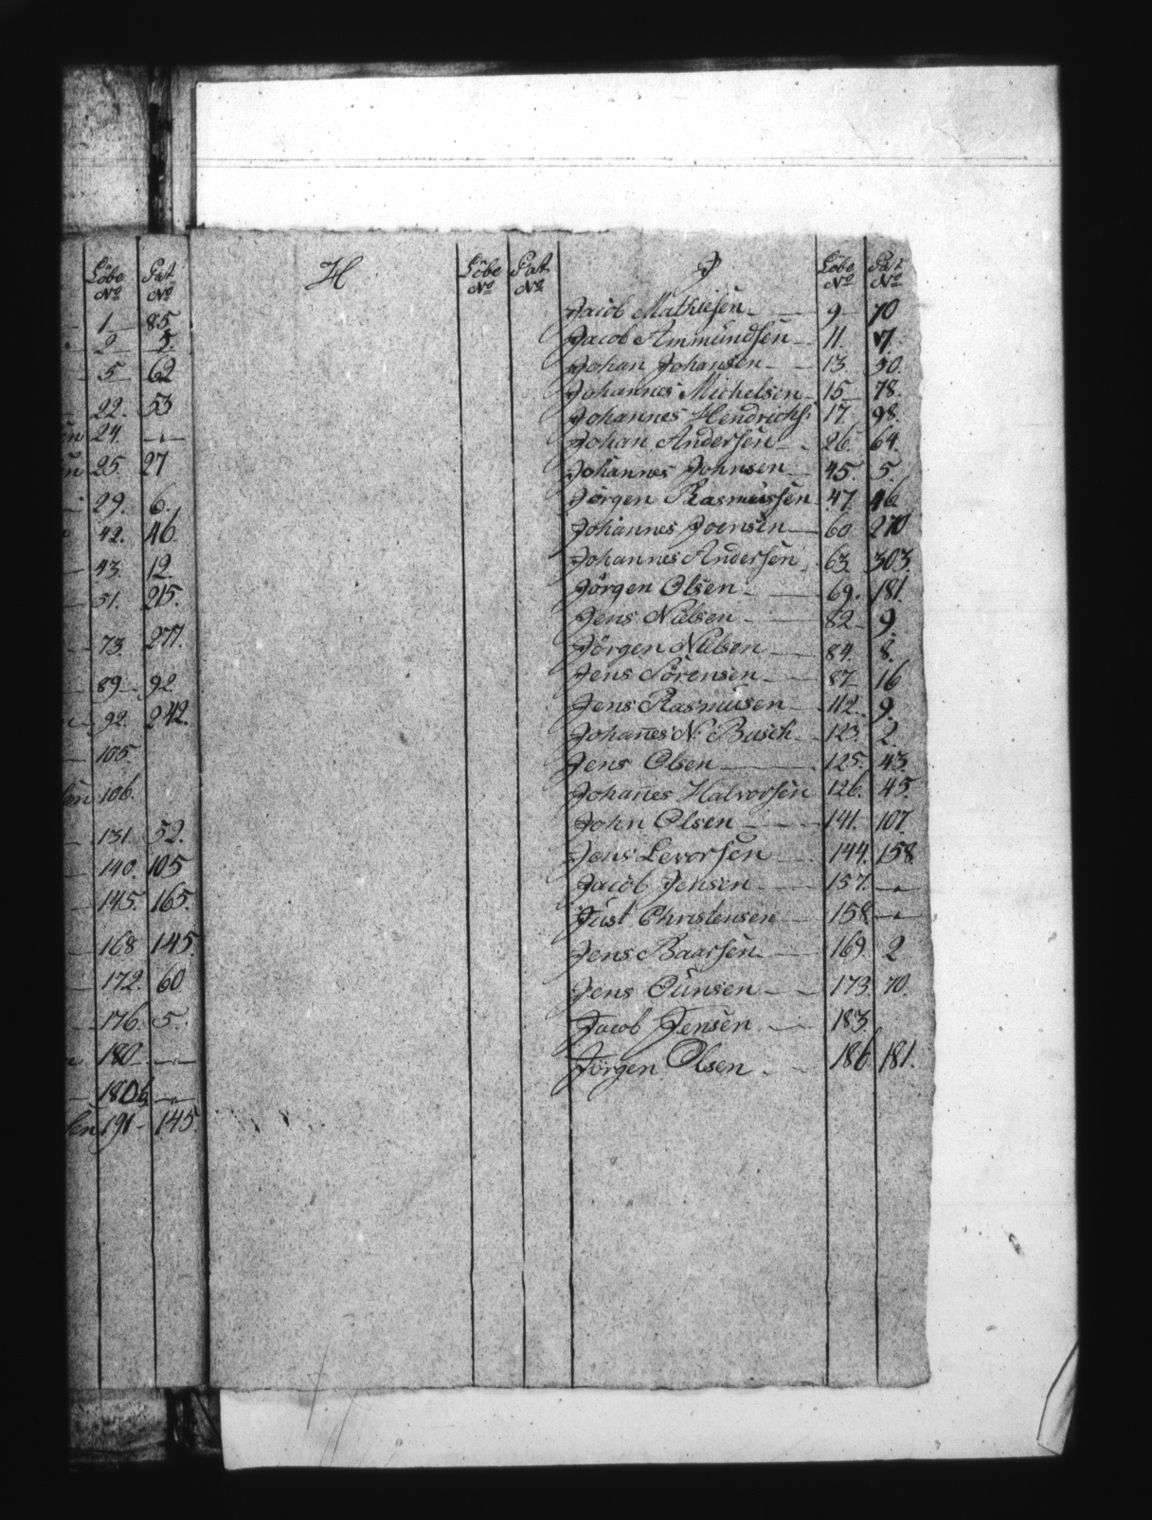 Löbe Pat
No No
1 85
2 5
5 62
22. 53
24. —"—
25 27
29. 6.
42. 46
43 12
51. 215.
73. 277.
89 92
92. 242.
105.
106.
131. 52.
140. 105
145. 165.
168 145.
172. 60
176. 5.
180 —"—
180b —"—
191 145.
H Löbe No Pat No
J Löbe No Pat No
Jacob Mathiesen 9 70
Jacob Ammundsen 11. 7.
Johan Johansen 13. 50.
Johannes Michelsen 15 78.
Johannes Hendrichs: 17. 98.
Johan Andersen 26. 64.
Johannes Johnsen 45. 5.
Jörgen Rasmussen 47. 46
Johannes Joensen 60 270
Johannes Andersen 63 303.
Jörgen Olsen 69. 181.
Jens Nielsen 82 9.
Jörgen Nielsen 84. 8.
Jens Sörensen 87 16
Jens Rasmusen 112. 9.
Johanes N. Busch 123. 2.
Jens Olsen 125. 43
Johanes Halvorsen 126. 45.
John Olsen 141. 107
Jens Levorsen 144. 158
Jacob Jensen 157. —"—
Just Christensen 158 —"—
Jens Baarsen 169 2
Jens Gunsen 173. 70.
Jacob Jensen 183
Jörgen Olsen 186 181.